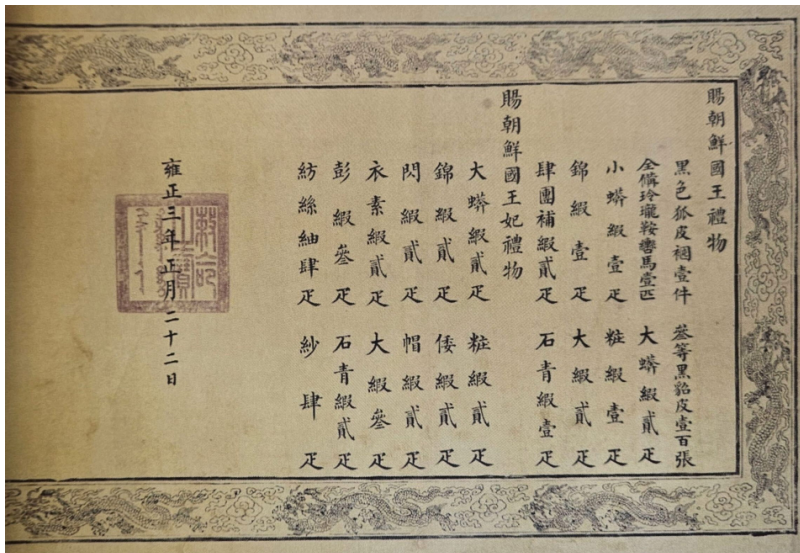 賜朝鮮國王禮物
黑色狐皮裀壹件 叄等黑貂皮壹百張
全備玲瓏鞍轡馬壹匹 大蟒緞貳疋
小蟒緞壹疋 粧緞壹疋
錦緞壹疋 大緞貳疋
肆團補緞貳疋 石青緞壹疋
賜朝鮮國王妃禮物
大蟒緞貳疋 粧緞貳疋
錦緞貳疋 倭緞貳疋
閃緞貳疋 帽緞貳疋
衣素緞貳疋 大緞叄疋
彭緞叄疋 石青緞貳疋
紡絲紬肆疋 紗肆疋
雍正三年正月二十二日
敕命之寶